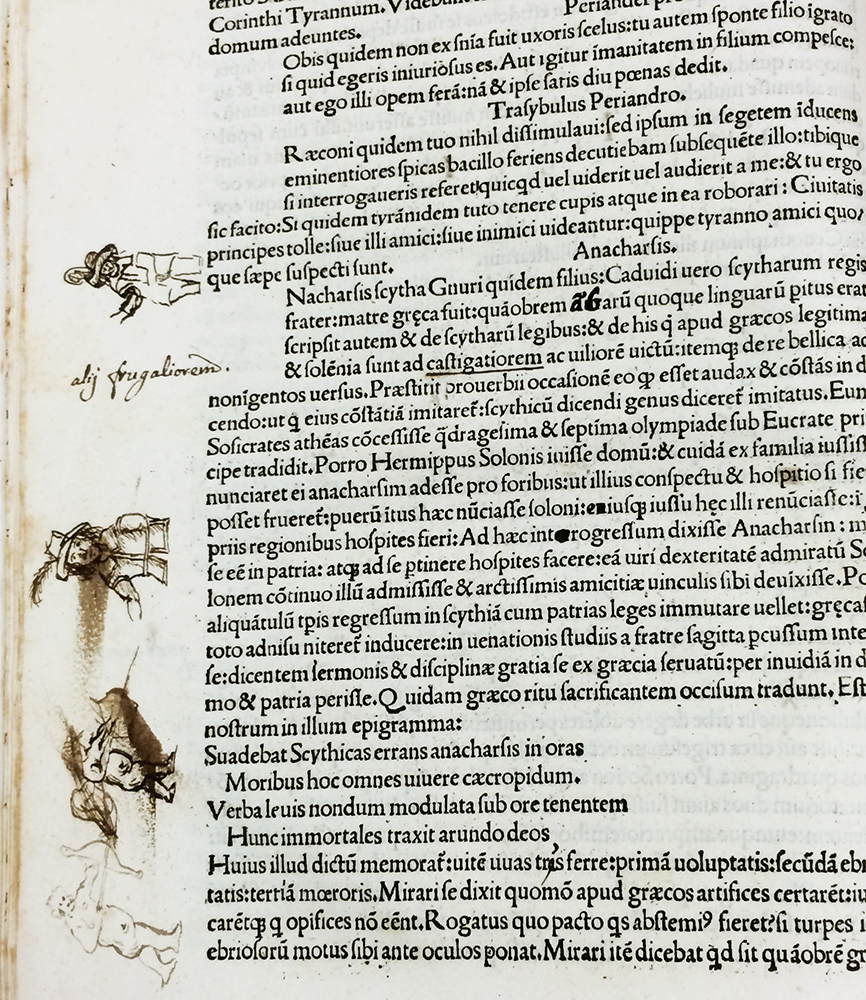 Corinthi Tyrannum.
domum adeuntes.
Obis quidem non ex ſnīa fuit uxoris ſcelus:tu autem ſponte filio igrato
ſi quid egeris iniurioſus es.Aut igitur īmanitatem in filium compeſce:
aut ego illi opem ferā:nā & ipſe ſatis diu pœnas dedit.
Traſybulus Periandro.
Ræconi quidem tuo nihil diſſimulaui:ſed ipſum in ſegetem īducens
eminentiores ſpicas bacillo feriens decutiebam ſubſequēte illo:tibique
ſi interrogaueris referet quicqd uel uiderit uel audierit a me:& tu ergo
ſic facito:Si quidem tyrānidem tuto tenere cupis atque in ea roborari:Ciuitatis
principes tolle:ſiue illi amici:ſiue inimici uideantur:quippe tyranno amici quo/
que ſæpe ſuſpecti ſunt.
Anacharſis.
Nacharſis ſcytha Gnuri quidem filius:Caduidi uero ſcytharum regis
frater:matre gręca fuit:quāobrem arū quoque linguarū pitus erat
ſcripſit autem & de ſcytharū legibus:& de his q̄ apud græcos legitima
& ſolēnia ſunt ad caſtigatiorem ac uiliorē uictū:itemq; de re bellica ad
alij frugaliorem.
nonīgentos uerſus.Præſtitit prouerbii occaſionē eo ꝙ eſſet audax & cōſtās in d
cendo:ut q̄ eius cōſtātiā imitaret᷑:ſcythicū dicendi genus diceret᷑ imitatus.Eum
Soſicrates athēas cōceſſiſſe q̄drageſima & ſeptima olympiade ſub Eucrate pri
cipe tradidit.Porro Hermippus Solonis iuiſſe domū:& cuidā ex familia iuſſiſſ
nunciaret ei anacharſim adeſſe pro foribus:ut illius conſpectu & hoſpitio ſi fie
poſſet frueret᷑:puerū ītus hæc nūciaſſe ſoloni:eiuſq; iuſſu hęc illi renūciaſſe:ī
priis regionibus hoſpites fieri:Ad hæc interogreſſum dixiſſe Anacharſin:
ſe eē in patria: atq; ad ſe ptinere hoſpites facere:eā uirī dexteritatē admiratū So
lonem cōtinuo illū admiſiſſe & arctiſſimis amicitiæ uinculis ſibi deuīxiſſe.Po
aliquātulū tpis regreſſum in ſcythiā cum patrias leges immutare uellet:gręcaſ
toto adniſu niteret᷑ inducere:in uenationis ſtudiis a fratre ſagitta pcuſſum inte
ſe:dicentem ſermonis & diſciplinæ gratia ſe ex græcia ſeruatū:per inuidiā in d
mo & patria periſſe.Quidam græco ritu ſacrificantem occiſum tradunt.Eſt
noſtrum in illum epigramma:
Suadebat Scythicas errans anacharſis in oras
Moribus hoc omnes uiuere cæcropidum.
Verba leuis nondum modulata ſub ore tenentem
Hunc immortales traxit arundo deos,
Huius illud dictū memorat᷑:uitē uuas tris ferre:primā uoluptatis:ſecūdā ebri
tatis:tertiā mœroris.Mirari ſe dixit quomō apud græcos artifices certarēt:iu
carētq; q opifices nō eēnt.Rogatus quo pacto qs abſtemi⁹ fieret?ſi turpes i
ebrioſorū motus ſibi ante oculos ponat.Mirari itē dicebat q̄d ſit quāobrē gr